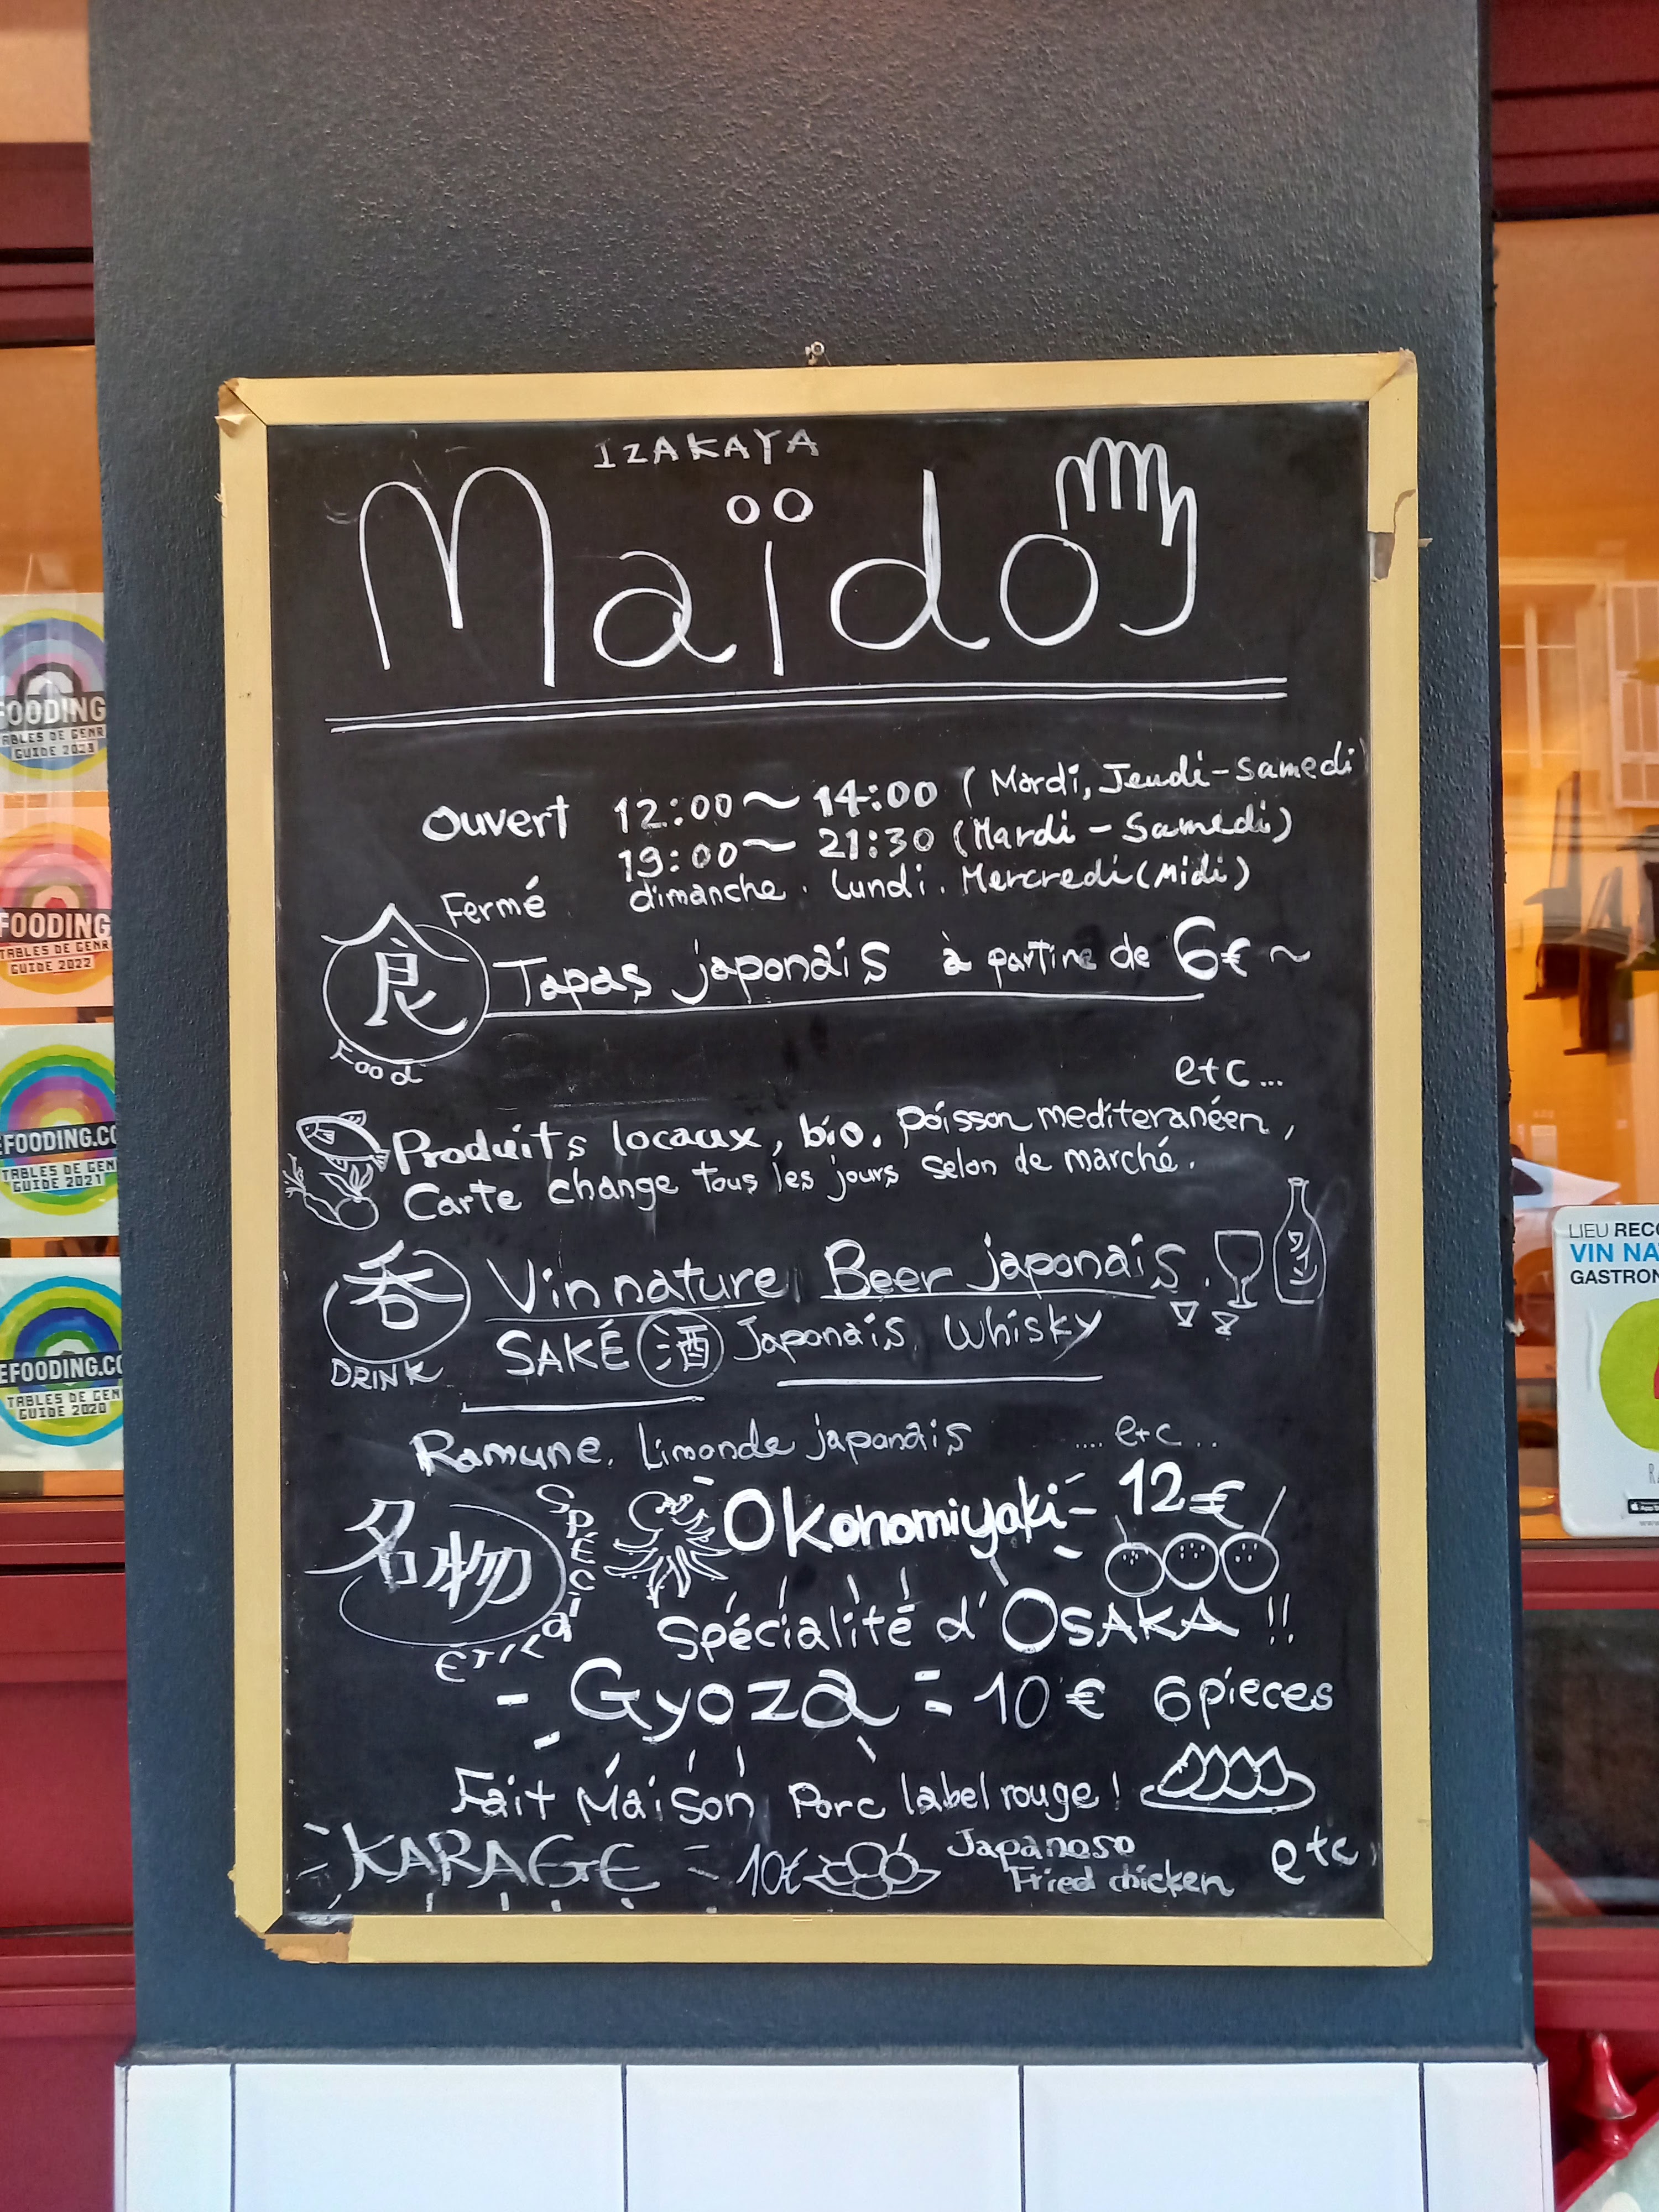 IZAKAYA
Maïdo
Ouvert 12:00～14:00 (Mardi, Jeudi-Samedi)
19:00～21:30 (Mardi-Samedi)
Fermé dimanche. lundi. Mercredi(Midi)
食 Tapas japonais à partire de 6€～
Food
etc...
Produits locaux, bio, poisson mediteranéen,
Carte change tous les jours selon de marché.
呑 Vin nature, Beer japonais.
DRINK SAKÉ 酒 Japonais, Whisky
Ramune, limonde japonais .... etc..
名物 Okonomiyaki 12€
Spécialité d'OSAKA !!
Gyoza 10€ 6 pieces
Fait Maison Porc label rouge!
KARAGE 10€ Japanoso
Fried chicken etc
FOODING
GUIDE 2023
FOODING
TABLES DE GENR
GUIDE 2022
EFOODING.CO
TABLES DE GEN
GUIDE 2021
EFOODING.CO
TABLES DE GEN
GUIDE 2020
LIEU RECO
VIN NA
GASTRON